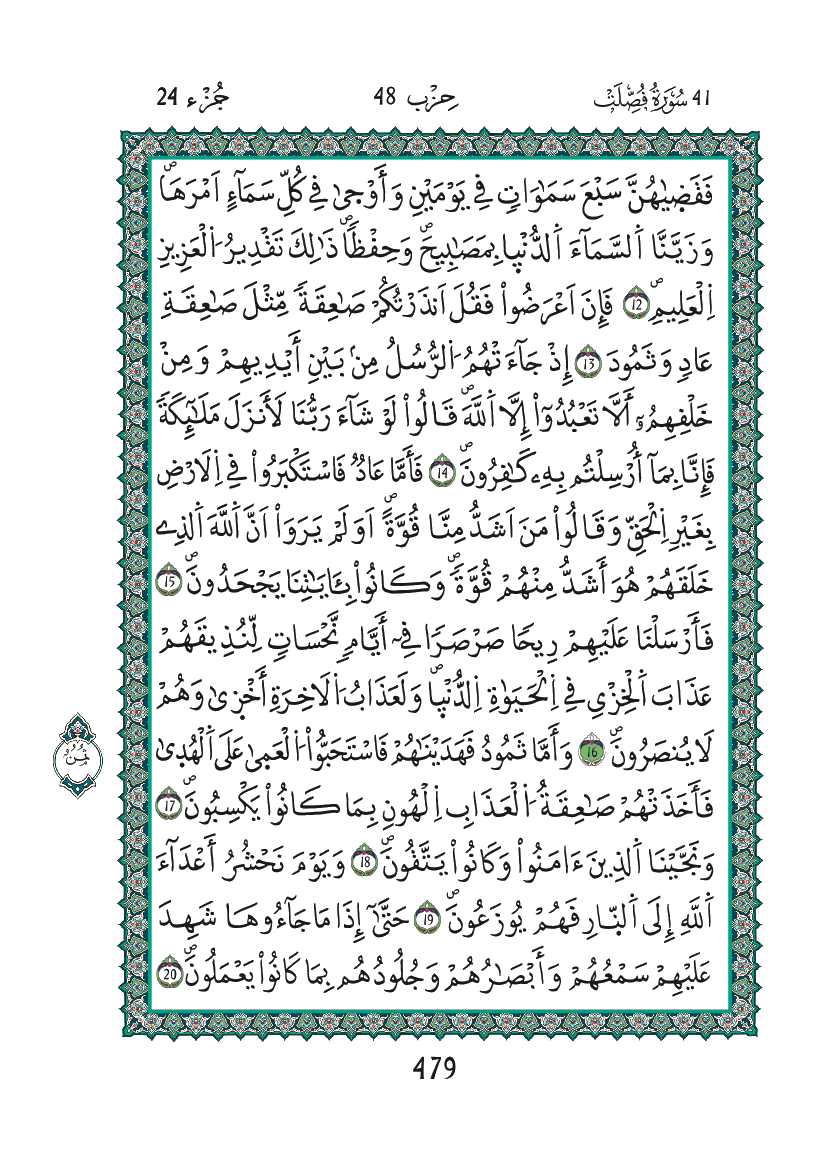 41 سُورَةُ فُصِّلَتْ حِزْب 48 جُزْء 24
فَقَضۭيٰهُنَّ سَبْعَ سَمَٰوَاتٖ فِي يَوْمَيْنِ وَأَوْح۪يٰ فِي كُلِّ سَمَآءٍ اَمْرَهَاۖ
وَزَيَّنَّا اَ۬لسَّمَآءَ اَ۬لدُّنْي۪ا بِمَصَٰبِيحَۖ وَحِفْظاٗۖ ذَٰلِكَ تَقْدِيرُ اُ۬لْعَزِيزِ
اِ۬لْعَلِيمِۖ 12 فَإِنَ اَعْرَضُواْ فَقُلَ اَنذَرْتُكُمْ صَٰعِقَةٗ مِّثْلَ صَٰعِقَةِ
عَادٖ وَثَمُودَ 13 إِذْ جَآءَتْهُمُ اُ۬لرُّسُلُ مِنۢ بَيْنِ أَيْدِيهِمْ وَمِنْ
خَلْفِهِمُۥٓ أَلَّا تَعْبُدُوٓاْ إِلَّا اَ۬للَّهَۖ قَالُواْ لَوْ شَآءَ رَبُّنَا لَأَنزَلَ مَلَٰٓئِكَةٗ
فَإِنَّا بِمَآ أُرْسِلْتُم بِهِۦ كَٰفِرُونَۖ 14 فَأَمَّا عَادٞ فَاسْتَكْبَرُواْ فِي اِ۬لَارْضِ
بِغَيْرِ اِ۬لْحَقِّ وَقَالُواْ مَنَ اَشَدُّ مِنَّا قُوَّةًۖ اَوَلَمْ يَرَوَاْ اَنَّ اَ۬للَّهَ اَ۬لذِے
خَلَقَهُمْ هُوَ أَشَدُّ مِنْهُمْ قُوَّةٗۖ وَكَانُواْ بِـَٔايَٰتِنَا يَجْحَدُونَۖ 15
فَأَرْسَلْنَا عَلَيْهِمْ رِيحاٗ صَرْصَراٗ فِےٓ أَيَّامٖ نَّحْسَاتٖ لِّنُذِيقَهُمْ
عَذَابَ اَ۬لْخِزْيِ فِي اِ۬لْحَيَوٰةِ اِ۬لدُّنْي۪اۖ وَلَعَذَابُ اُ۬لَاخِرَةِ أَخْز۪يٰ وَهُمْ
لَا يُنصَرُونَۖ 16 وَأَمَّا ثَمُودُ فَهَدَيْنَٰهُمْ فَاسْتَحَبُّواْ اُ۬لْعَم۪يٰ عَلَي اَ۬لْهُد۪يٰ
فَأَخَذَتْهُمْ صَٰعِقَةُ اُ۬لْعَذَابِ اِ۬لْهُونِ بِمَا كَانُواْ يَكْسِبُونَۖ 17
وَنَجَّيْنَا اَ۬لذِينَ ءَامَنُواْ وَكَانُواْ يَتَّقُونَۖ 18 وَيَوْمَ نَحْشُرُ أَعْدَآءَ
اَ۬للَّهِ إِلَي اَ۬لنّ۪ارِ فَهُمْ يُوزَعُونَۖ 19 حَتَّيٰٓ إِذَا مَا جَآءُوهَا شَهِدَ
عَلَيْهِمْ سَمْعُهُمْ وَأَبْصَٰرُهُمْ وَجُلُودُهُم بِمَا كَانُواْ يَعْمَلُونَۖ 20
ثُمُن
479